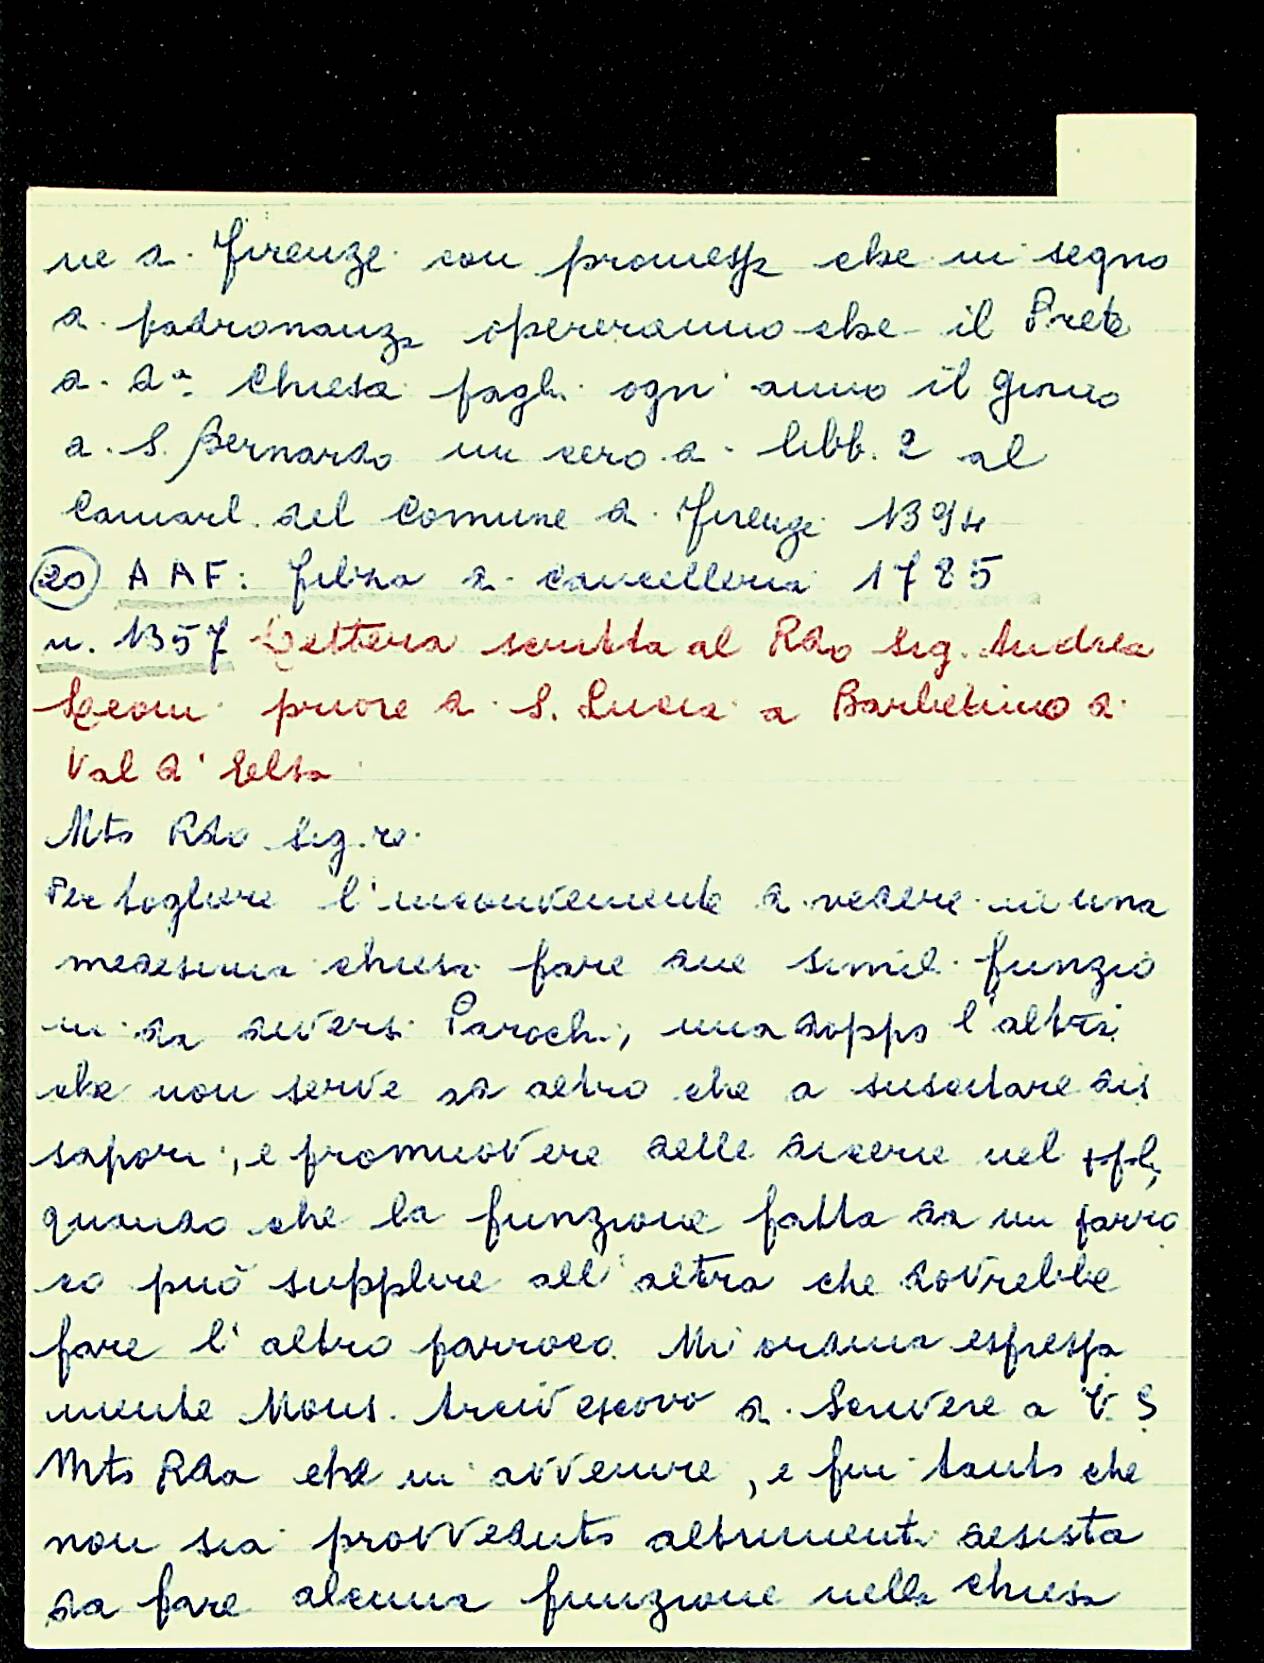 ne di Firenze con promessa che in segno
di padronanza opereranno che il Prete
di da Chiesa paghi ogni anno il giorno
di S. Bernardo un cero di libb. 2 al
Camarl. del Comune di Firenze 1394
20 AAF: filza di cancelleria 1785
n. 1357 Lettera scritta al Rdo Sig. Andrea
priore di S. Lucia a Barberino di
Val d'Elsa
Mto Rdo Sig.re
Per togliere l'inconveniente di vedere in una
medesima chiesa fare due simili funzio
ni da diversi Parochi, una doppo l'altra
che non serve ad altro che a suscitare dis
sapori, e promuovere delle dicerie nel
quando che la funzione fatta da un parro
co può supplire all'altra che dovrebbe
fare l'altro parroco. Mi ordina espressa
mente Mons. Arcivescovo di Scrivere a V. S
Mto Rda che in avvenire, e fin tanto che
non sia provveduto altrimenti desista
da fare alcuna funzione nella chiesa